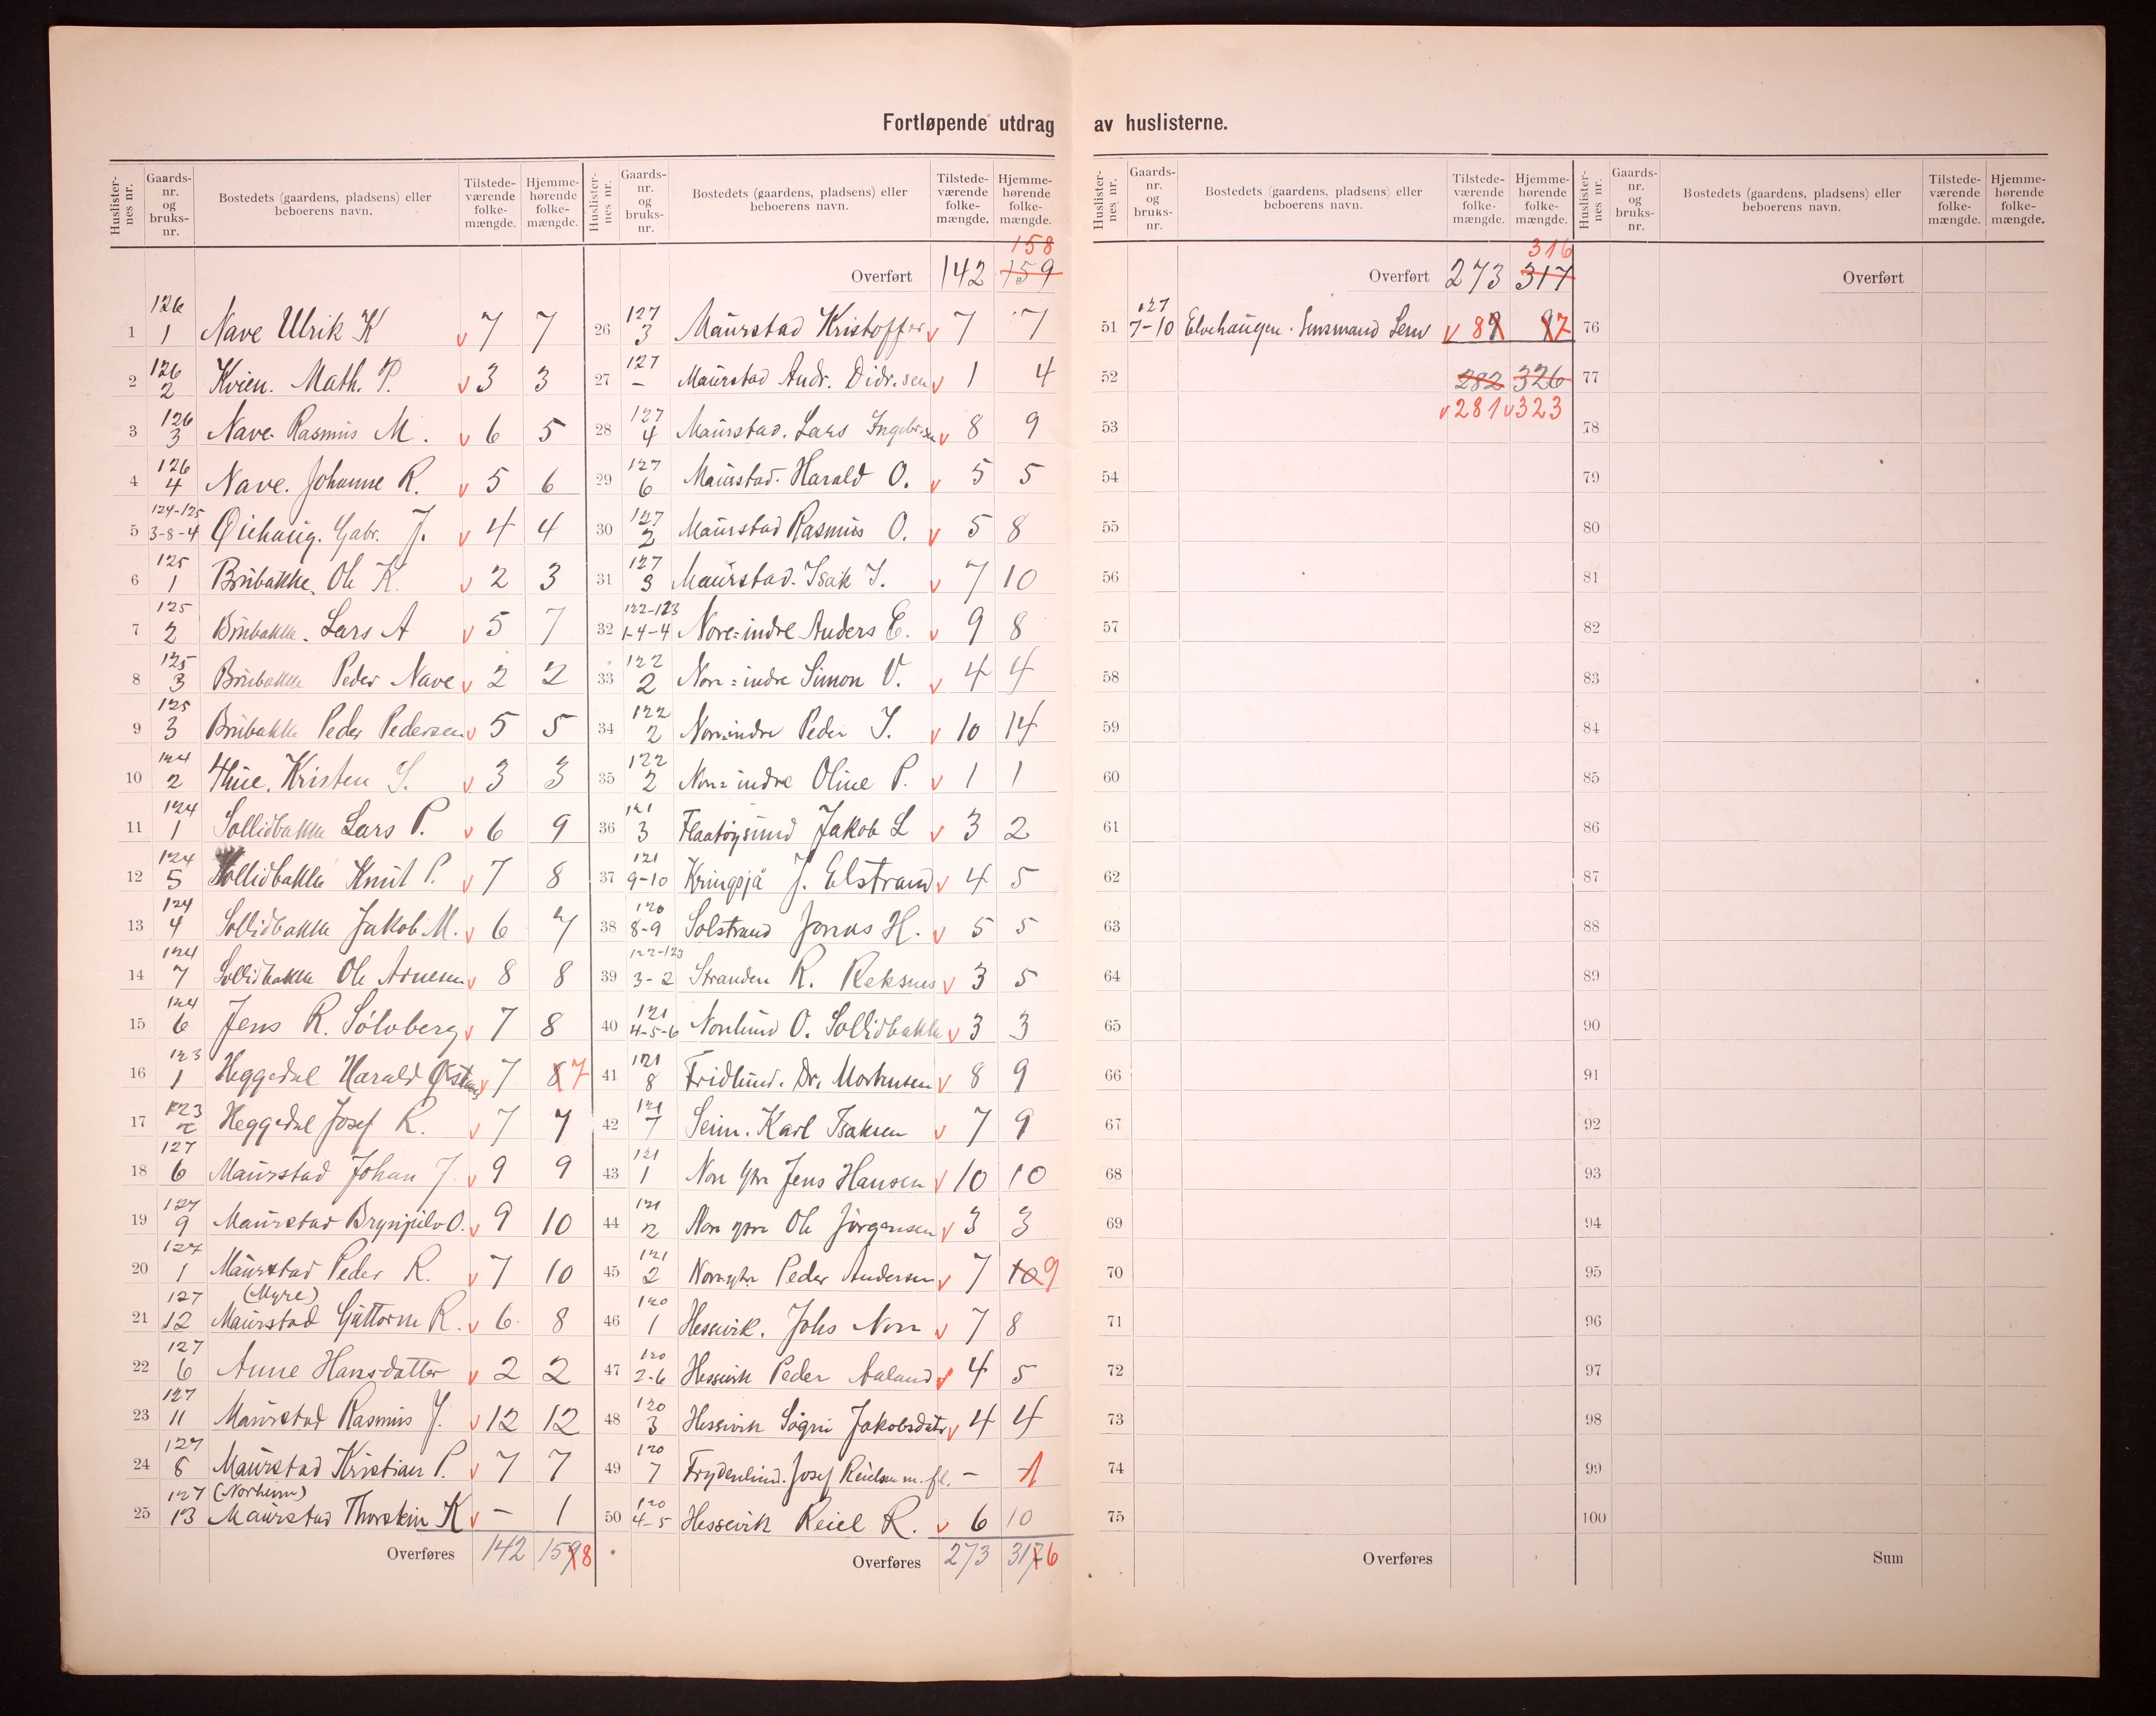 Fortløpende utdrag av huslisterne.
Huslisternes nr. Gaards-nr. og bruks-nr. Bostedets (gaardens, pladsens) eller beboerens navn. Tilstede-værende folke-mængde. Hjemme-hørende folke-mængde.
1 126 1 Nave Ulrik K v 7 7
2 126 2 Kvien. Math. P. v 3 3
3 126 3 Nave. Rasmus M. v 6 5
4 126 4 Nave. Johanne R. v 5 6
5 124-125 3-8-4 Øiehaug. Gabr. J. v 4 4
6 125 1 Brubakke. Ole K. v 2 3
7 125 2 Brubakke. Lars A v 5 7
8 125 3 Brubakke Peder Nave v 2 2
9 125 3 Brubakke Peder Pedersen v 5 5
10 124 2 Hue. Kristen S. v 3 3
11 124 1 Sollidbakke Lars P. v 6 9
12 124 5 Sollidbakke Knut P. v 7 8
13 124 4 Sollidbakke Jakob M. v 6 7
14 124 7 Sollidbakke Ole Arnesen v 8 8
15 124 6 Jens R. Sölvberg v 7 8
16 123 1 Heggedal Harald v 7 8 7
17 123 2 Heggedal Josef R. v 7 7
18 127 6 Maurstad Johan J. v 9 9
19 127 9 Maurstad Brynjulv O. v 9 10
20 127 1 Maurstad Peder R. v 7 10
21 127 12 (Myre) Maurstad Guttorm R. v 6 8
22 127 6 Anne Hansdatter v 2 2
23 127 11 Maurstad Rasmus J. v 12 12
24 127 8 Maurstad Kristian P. v 7 7
25 127 13 (Norheim) Maurstad Thorstein K v - 1
Overføres 142 159 8
Huslisternes nr. Gaards-nr. og bruks-nr. Bostedets (gaardens, pladsens) eller beboerens navn. Tilstede-værende folke-mængde. Hjemme-hørende folke-mængde.
158
Overført 142 159
26 127 3 Maurstad Kristoffer v 7 7
27 127 - Maurstad Andr. Didr.sen v 1 4
28 127 4 Maurstad. Lars Ingebr.sen v 8 9
29 127 6 Maurstad. Harald O. v 5 5
30 127 2 Maurstad Rasmus O. v 5 8
31 127 3 Maurstad. Isak I. v 7 10
32 122-123 1-4-4 Nore=indre Anders E. v 9 8
33 122 2 Nore=indre Simon V. v 4 4
34 122 2 Nore=indre Peder I. v 10 14
35 122 2 Nore=indre Oline P. v 1 1
36 121 3 Flaatöysund Jakob L v 3 2
37 121 9-10 Kringsjå J. Elstrand v 4 5
38 120 8-9 Solstrand Jonas H. v 5 5
39 122-123 3-2 Stranden R. Reksnes v 3 5
40 121 4-5-6 Norelund O. Sollidbakke v 3 3
41 121 8 Fridlund. Dr. Mortensen v 8 9
42 121 7 Seim. Karl Isaksen v 7 9
43 121 1 Nore ytre Jens Hansen v 10 10
44 121 2 Nore ytre Ole Jörgensen v 3 3
45 121 2 Nore ytre Peder Andersen v 7 10 9
46 120 1 Hessevik. Johs Nore v 7 8
47 120 2-6 Hessevik Peder Aaland v 4 5
48 120 3 Hessevik Sögni Jakobsdatr v 4 4
49 120 7 Frydenlund. Josef Reielsen m. fl. - 1
50 120 4-5 Hessevik Reiel R. v 6 10
Overføres 273 317 6
Huslisternes nr. Gaards-nr. og bruks-nr. Bostedets (gaardens, pladsens) eller beboerens navn. Tilstede-værende folke-mængde. Hjemme-hørende folke-mængde.
316
Overført 273 317
51 127 7-10 Elvehaugen. Lensmand v 8 9 9 7
52 282 326
53 v 281 v 323
54
55
56
57
58
59
60
61
62
63
64
65
66
67
68
69
70
71
72
73
74
75
Overføres
Huslisternes nr. Gaards-nr. og bruks-nr. Bostedets (gaardens, pladsens) eller beboerens navn. Tilstede-værende folke-mængde. Hjemme-hørende folke-mængde.
Overført
76
77
78
79
80
81
82
83
84
85
86
87
88
89
90
91
92
93
94
95
96
97
98
99
100
Sum